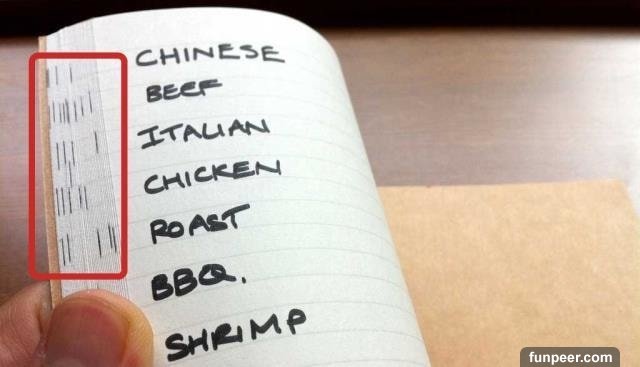 CHINESE
BEEF
ITALIAN
CHICKEN
ROAST
BBQ.
SHRIMP
funpeer.com